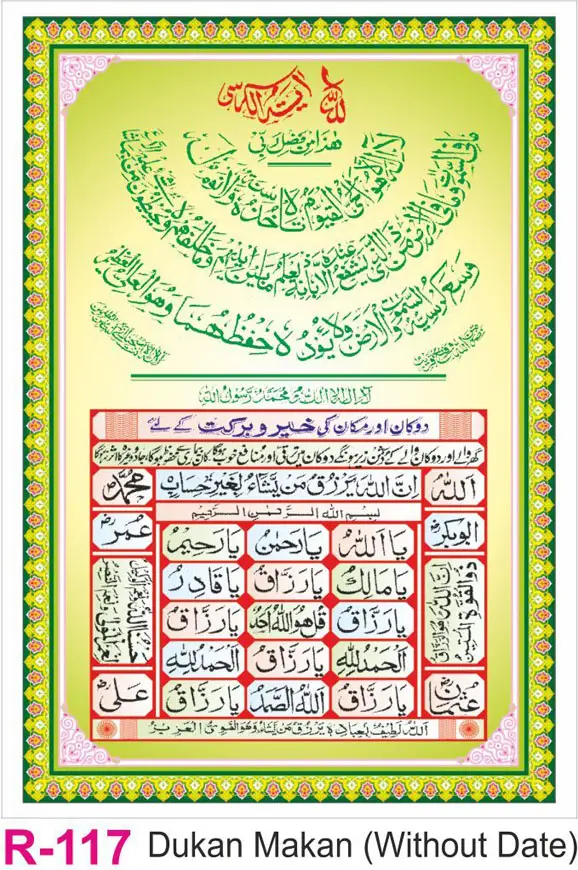 آیۃ الکرسی
هذا من فضل ربي
الله لا اله الا هو الحي القيوم لا تاخذه سنة ولا نوم
له ما في السموت وما في الارض من ذا الذي يشفع عنده الا باذنه يعلم ما بين ايديهم وما خلفهم ولا يحيطون بشيء من علمه الا بما شاء
وسع كرسيه السموت والارض ولا يؤده حفظهما وهو العلي العظيم
لا اله الا الله محمد رسول الله
دوکان اور مکان کی خیر و برکت کے لئے
الله ان الله يرزق من يشاء بغير حساب محمد
بسم الله الرحمن الرحيم
ابوبکر یا الله یا رحمن یا رحیم عمر
یا مالک یا رزاق یا قادر
ان الله هو الرزاق ذو القوة المتین
یا رزاق قل هو الله احد یا رزاق
الحمد لله یا رزاق الحمد لله
عثمان یا رزاق الله الصمد یا رزاق علی
الله لطيف بعباده يرزق من يشاء وهو القوي العزيز
R-117 Dukan Makan (Without Date)